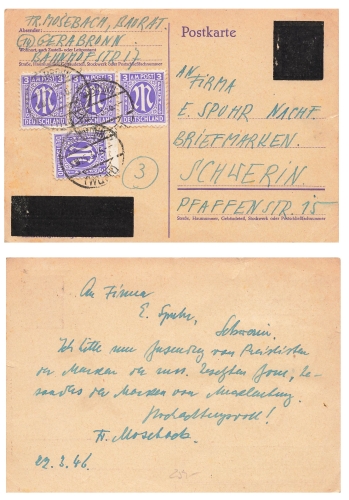 FR. MOSEBACH, BAURAT.
Absender:
(14) GERABRONN
Wohnort, auch Zustell- oder Leitpostamt
BAHNHOFSTR. 17
Straße, Hausnummer, Gebäudeteil, Stockwerk oder Postschließfachnummer
3 A.M. POST 3
DEUTSCHLAND
3 A.M. POST 3
DEUTSCHLAND
3 A.M. POST 3
DEUTSCHLAND
3
Postkarte
AN
FIRMA
E. SPOHR NACHF.
BRIEFMARKEN.
SCHWERIN
PFAFFENSTR. 15
Straße, Hausnummer, Gebäudeteil, Stockwerk oder Postschließfachnummer
An Firma
E. Spohr,
Schwerin.
Ich bitte um Zusendung von Preislisten
der Marken der russ. besetzten Zone, be-
sonders der Marken von Mecklenburg.
Hochachtungsvoll!
Fr. Mosebach
29.3.46.